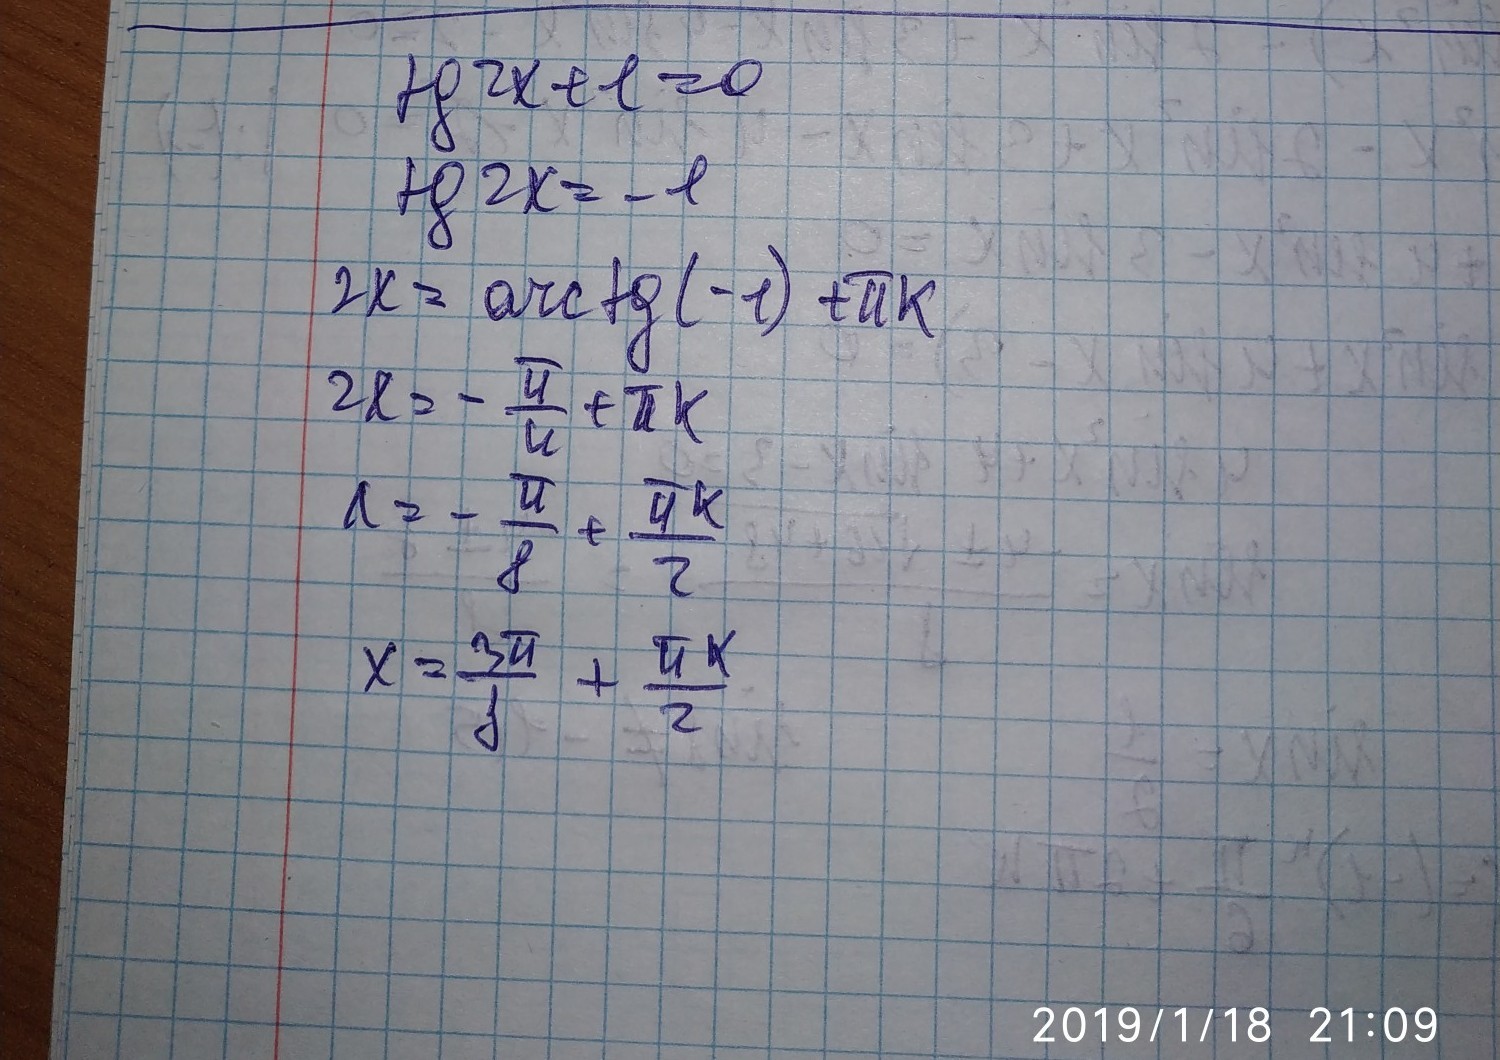 tg 2x + 1 = 0
tg 2x = -1
2x = arctg(-1) + πk
2x = - π/4 + πk
x = - π/8 + πk/2
x = 3π/8 + πk/2
2019/1/18 21:09